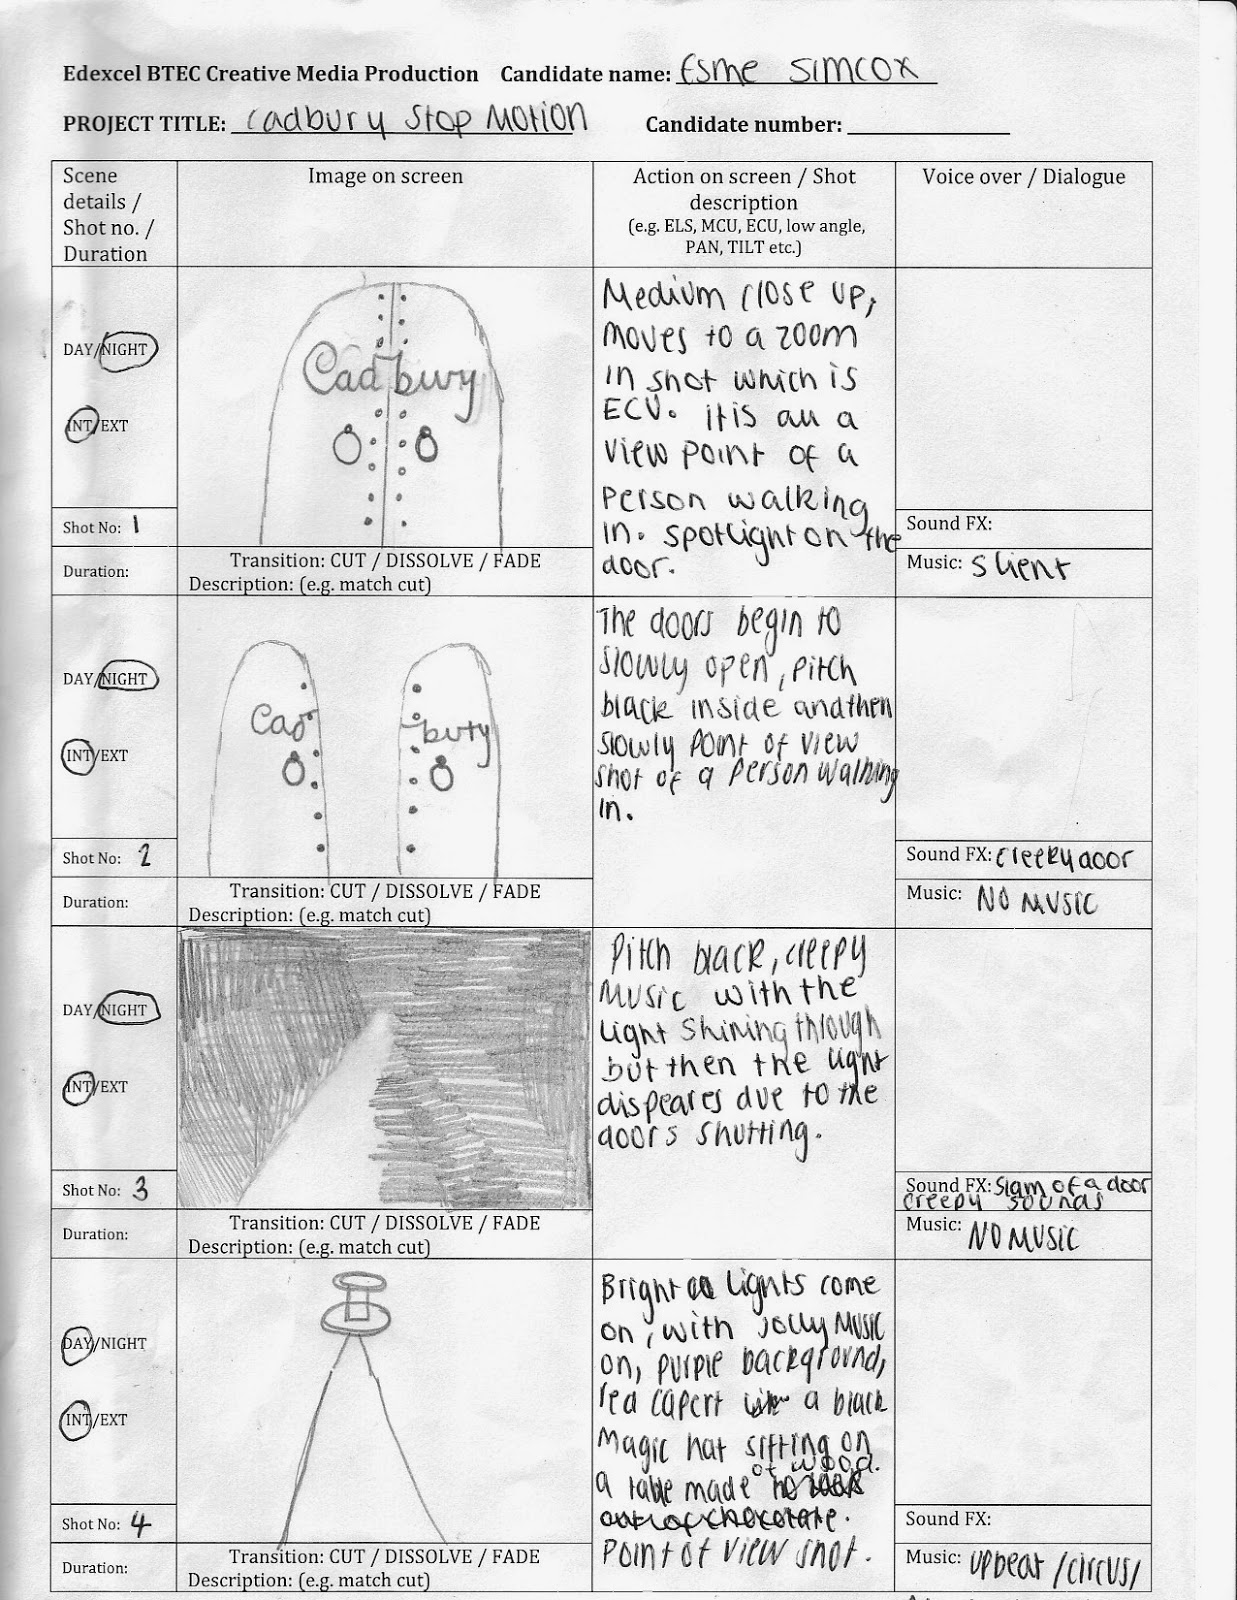 Edexcel BTEC Creative Media Production Candidate name: Esme Simcox
PROJECT TITLE: Cadbury Stop Motion Candidate number:
Scene details / Shot no. / Duration
Image on screen
Action on screen / Shot description
(e.g. ELS, MCU, ECU, low angle, PAN, TILT etc.)
Voice over / Dialogue
DAY/NIGHT
INT/EXT
Shot No: 1
Duration:
Cadbury
Transition: CUT / DISSOLVE / FADE
Description: (e.g. match cut)
Medium close up,
moves to a zoom
in shot which is
ECU. it is all a
view point of a
person walking
in. spotlight on the
door.
Sound FX:
Music: Slient
DAY/NIGHT
INT/EXT
Shot No: 2
Duration:
Cad bury
Transition: CUT / DISSOLVE / FADE
Description: (e.g. match cut)
The doors begin to
slowly open, pitch
black inside and then
slowly point of view
shot of a person walking
in.
Sound FX: creeky door
Music: NO MUSIC
DAY/NIGHT
INT/EXT
Shot No: 3
Duration:
Transition: CUT / DISSOLVE / FADE
Description: (e.g. match cut)
Pitch black, creepy
music with the
light shining through
but then the light
dispeares due to the
doors shutting.
Sound FX: Slam of a door
creepy sounds
Music: NO MUSIC
DAY/NIGHT
INT/EXT
Shot No: 4
Duration:
Transition: CUT / DISSOLVE / FADE
Description: (e.g. match cut)
Bright lights come
on, with jolly music
on, purple background,
red carpert a black
magic hat sitting on
a table made of wood.
out of chocolate.
Point of view shot.
Sound FX:
Music: upbeat /circus/